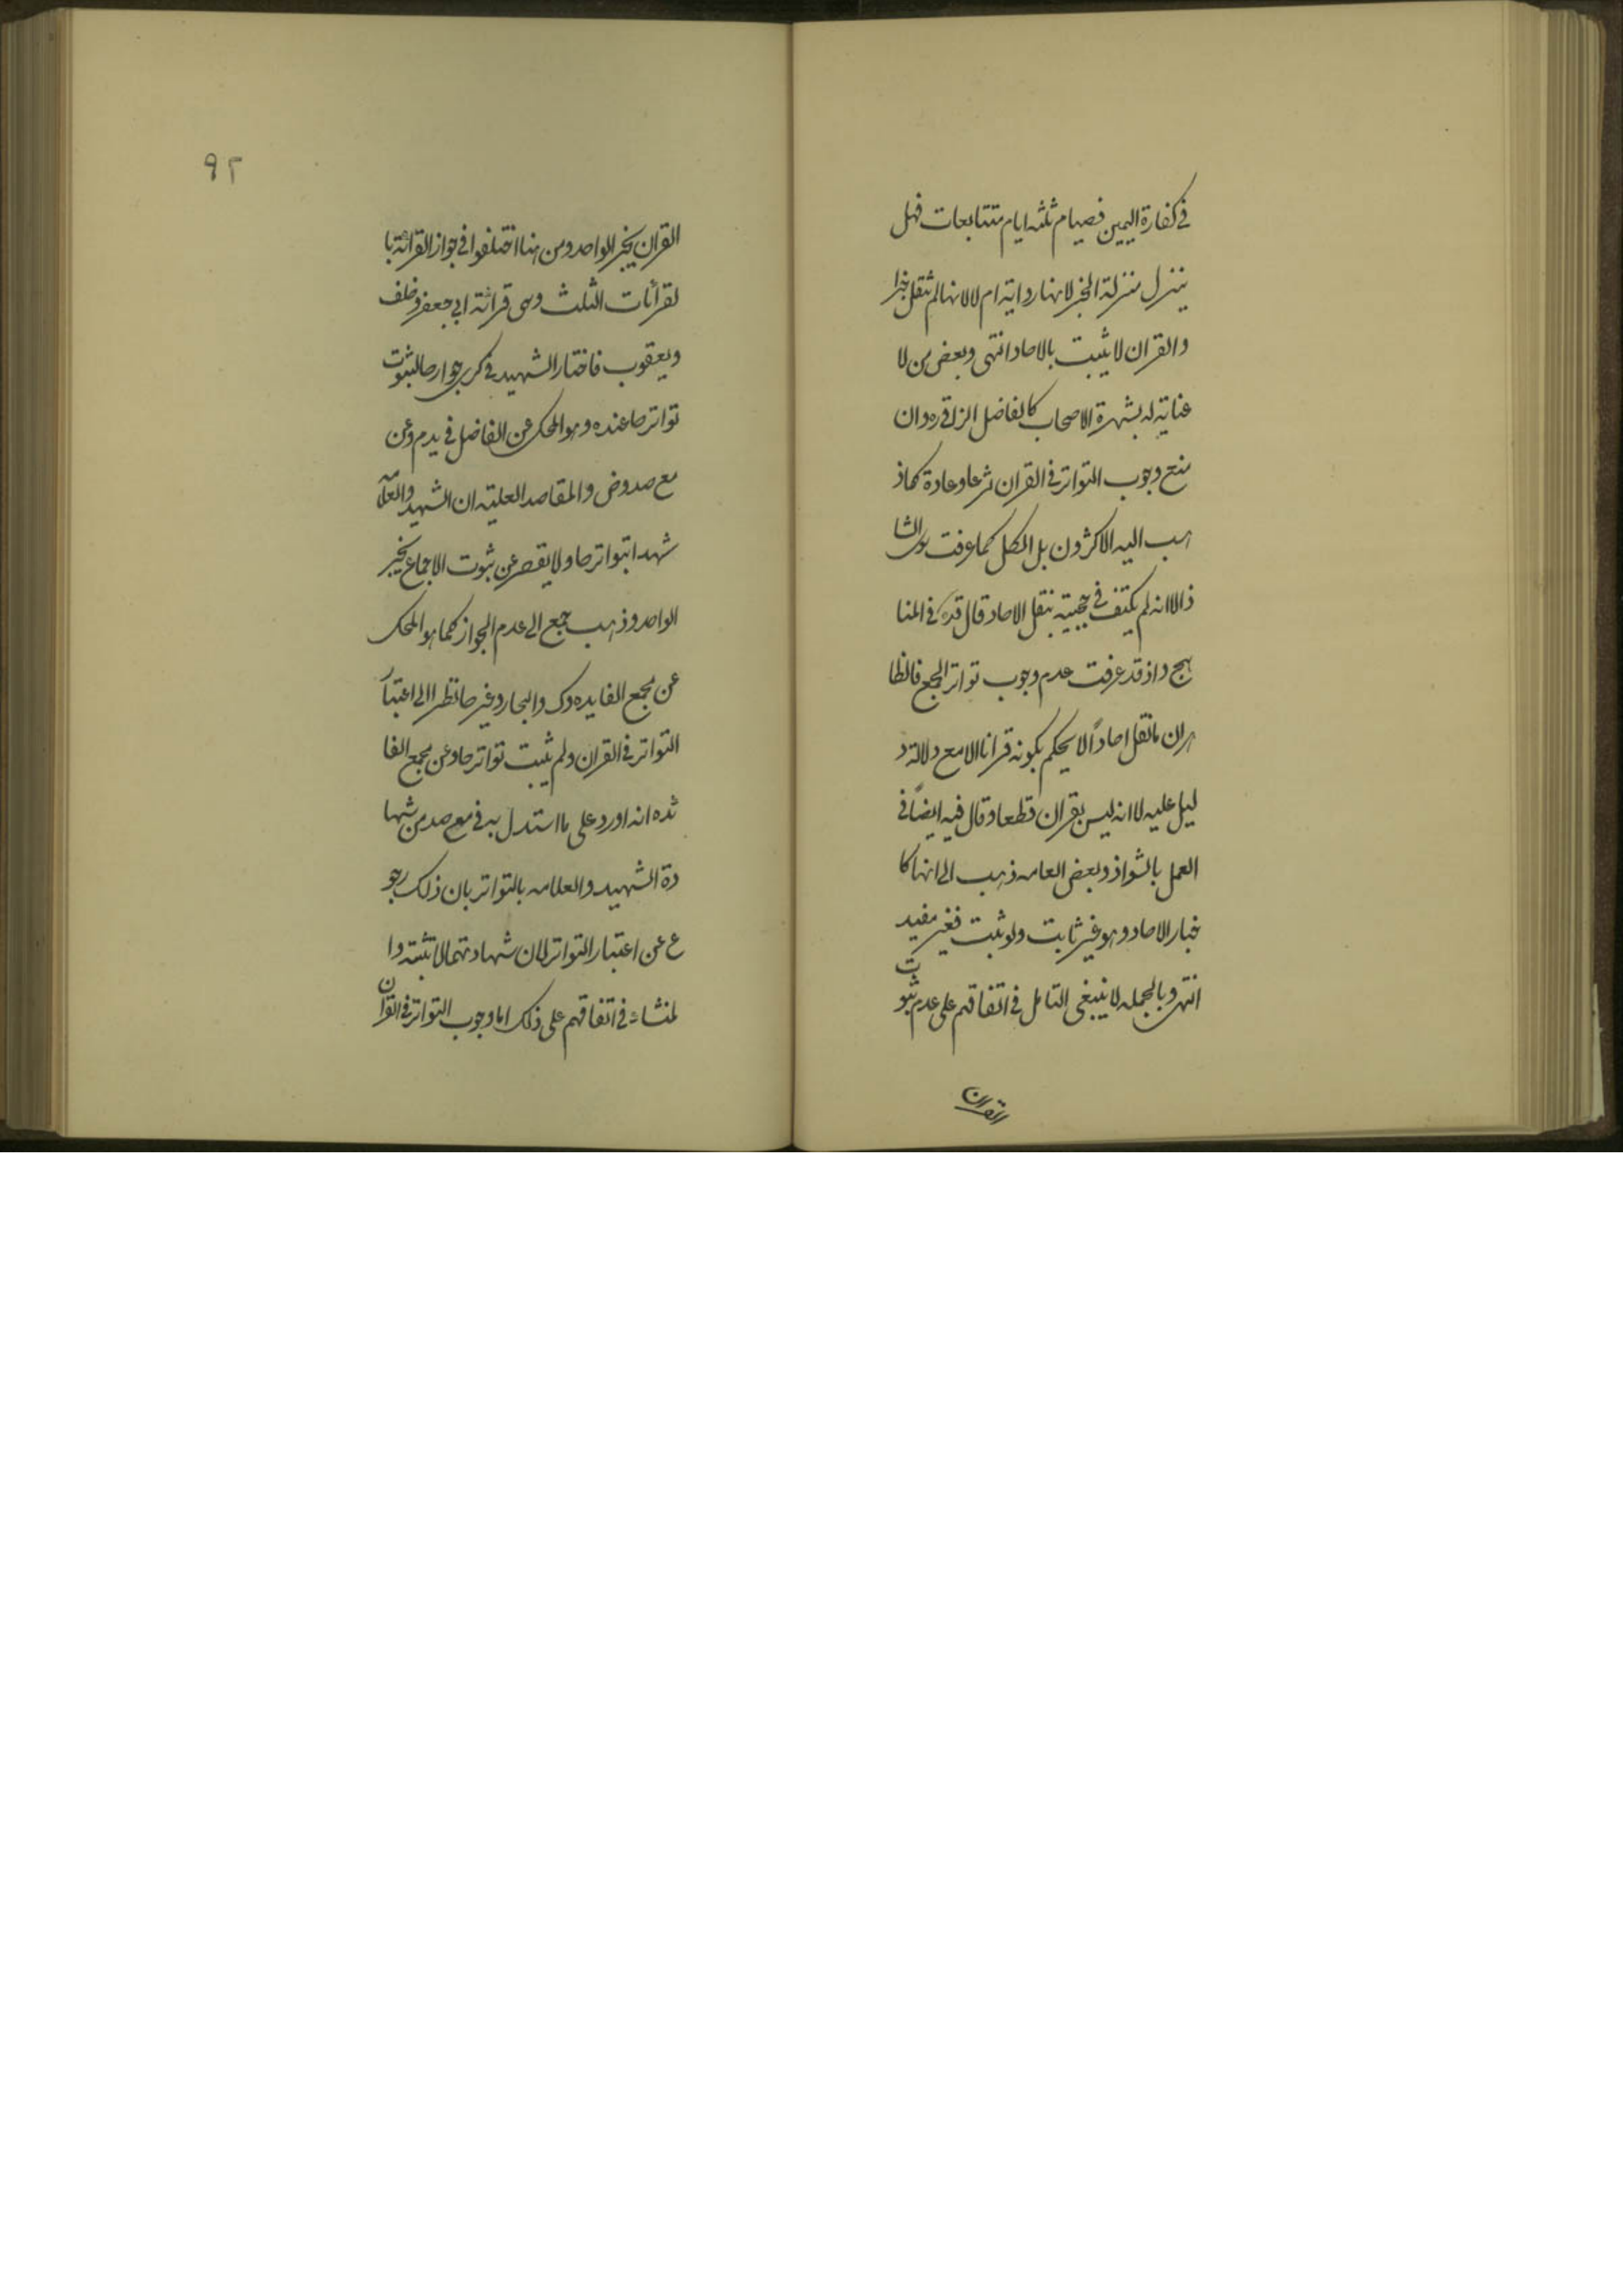 في كفارة اليمين فصيام ثلثه ايام متتابعات فهل
ينزل منزلة الخبر لانها رواية ام لا لانها لم تنقل خبرا
والقران لا يثبت بالاحاد انتهى وبعض من لا
عناية له بشهرة الاصحاب كالفاضل النراقي ره وان
منع وجوب التواتر في القران شرعا وعادة كما ذ
هب اليه الاكثرون بل الكل كما عرفت
ذ الا انه لم يكتف في حجيته بنقل الاحاد قال قده في المنا
هج واذ قد عرفت عدم وجوب تواتر الجميع فالظا
هر ان ما نقل احاداً لا يحكم بكونه قرانا الا مع دلالة د
ليل عليه لا انه ليس بقران قطعا وقال فيه ايضاً في
العمل بالشواذ وبعض العامه ذهب الى انها كا
خبار الاحاد وهو غير ثابت ولو ثبت فغير مفيد
انتهى وبالجمله لا ينبغي التامل في اتفاقهم على عدم ثبوت
القران
٩٢
القران بخبر الواحد ومن هنا اختلفوا في جواز القرائة با
لقرائات الثلث وهي قرائة ابي جعفر وخلف
ويعقوب فاختار الشهيد في كرى جوازها لثبوت
تواترها عنده وهو المحكى عن الفاضل في يه م وعن
مع صد وض والمقاصد العلية ان الشهيد والعلامه
شهدا بتواترها ولا يقصر عن ثبوت الاجماع بخبر
الواحد وذهب جمع الى عدم الجواز كما هو المحكى
عن مجمع الفايده وك والبحار وغيرها نظرا الى اعتبار
التواتر في القران ولم يثبت تواترها وعن مجمع الفا
ئده انه اورد على ما استدل به في مع صد من شها
دة الشهيد والعلامه بالتواتر بان ذلك رجو
ع عن اعتبار التواتر لان شهادتهما لا تثبته وا
لمنشاء في اتفاقهم على ذلك اما وجوب التواتر في القران